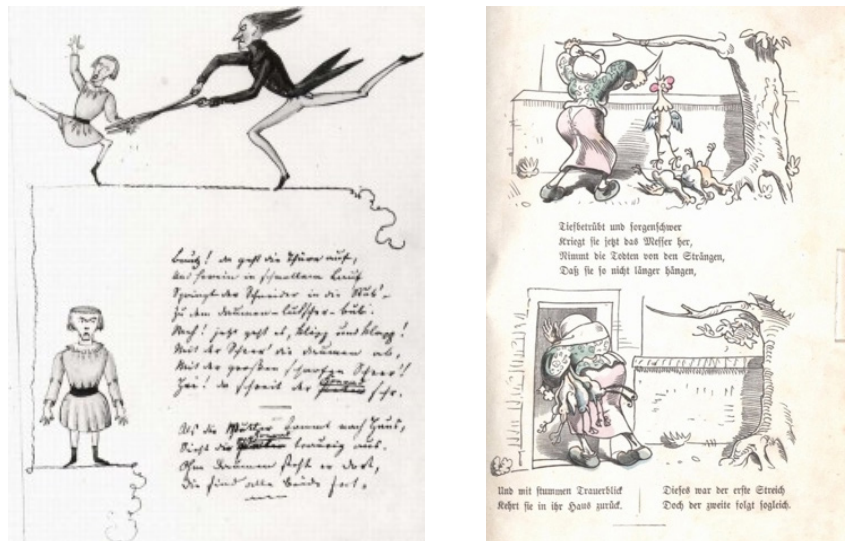 Bautz! da geht die Thüre auf,
Und herein in schnellem Lauf
Springt der Schneider in die Stub'
zu dem Daumen-lutscher-bub.
Weh! jetzt geht es, klipp und klapp!
Mit der Scheer die Daumen ab,
Mit der großen scharfen Scheer'!
Hei! da schreit der Konrad sehr.
Als die Mutter kommt nach Haus,
Sieht der Konrad traurig aus.
Ohne Daumen steht er dort,
die sind alle beide fort.
Tiefbetrübt und sorgenschwer
Kriegt sie jetzt das Messer her,
Nimmt die Todten von den Strängen,
Daß sie so nicht länger hängen,
Und mit stummen Trauerblick
Kehrt sie in ihr Haus zurück.
Dieses war der erste Streich
Doch der zweite folgt sogleich.